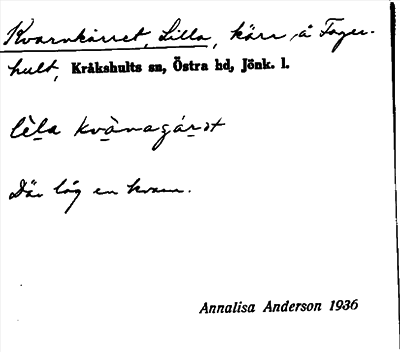 Kvarnkärret, Lilla, kärr å Fager-
hult, Kråkshults sn, Östra hd, Jönk. l.
lèla kvànagárət
Där låg en kvarn.
Annalisa Anderson 1936